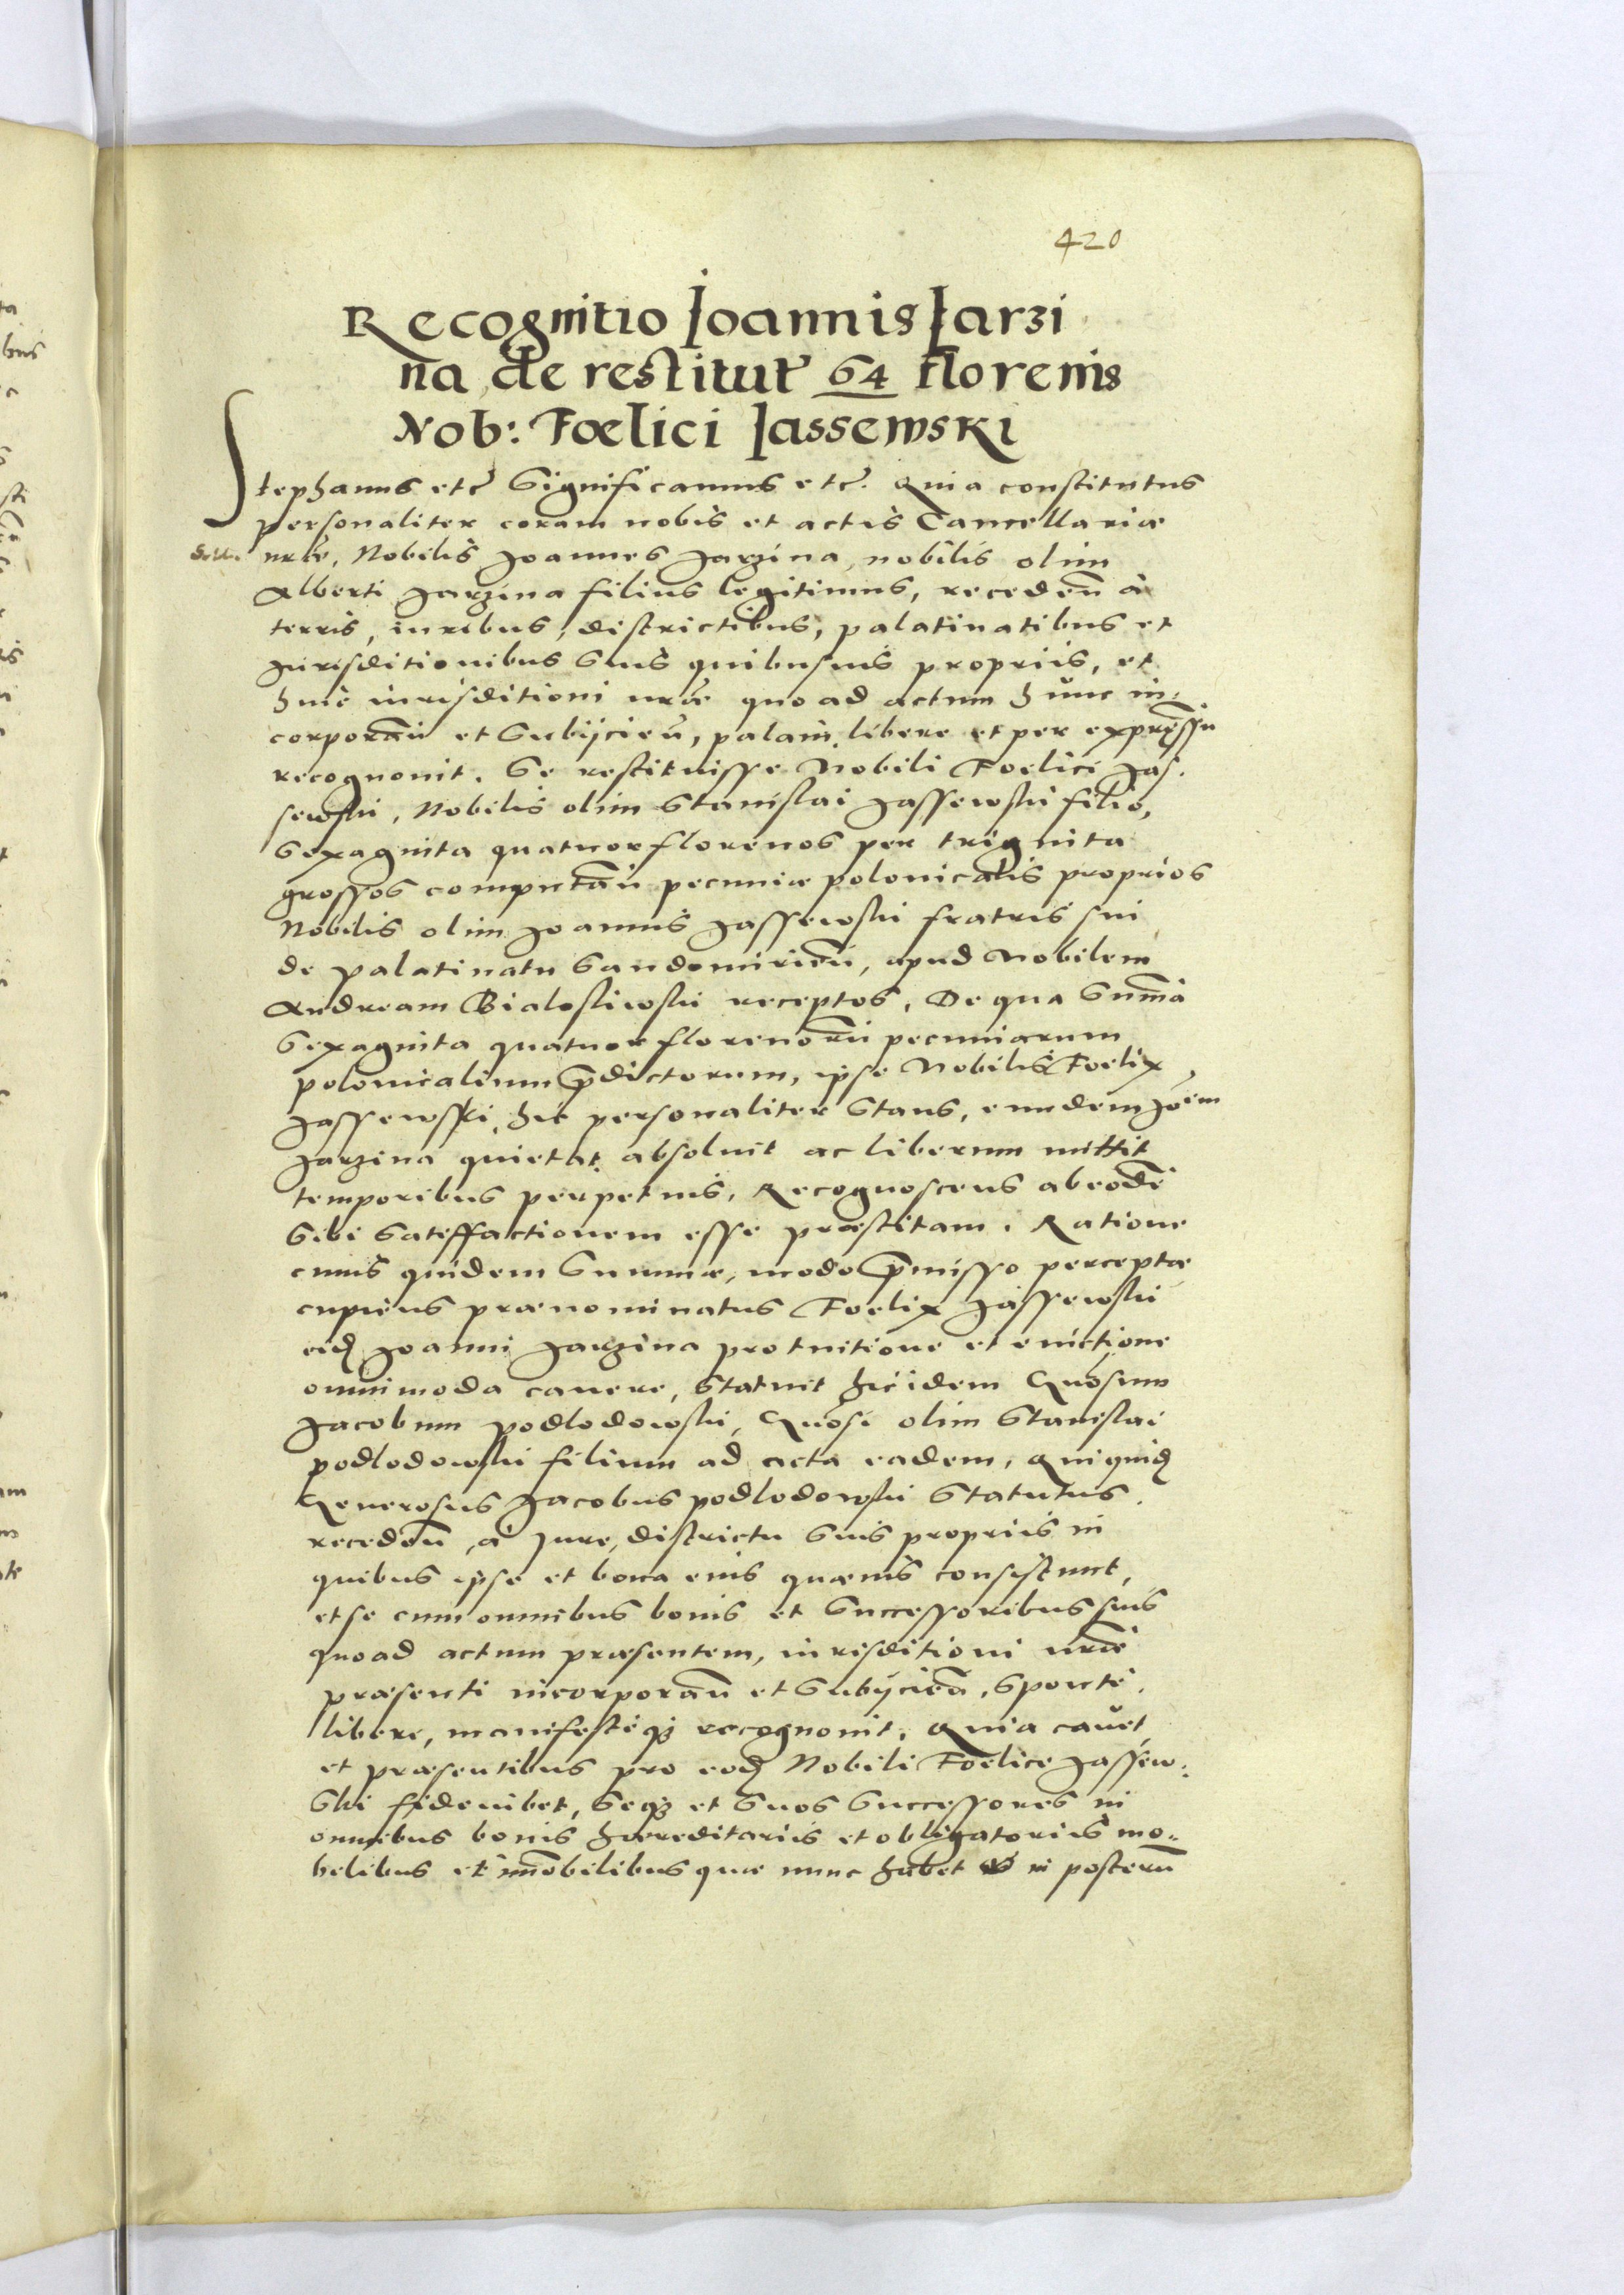 420
Recognitio Joannis Jarzi
na de restitut̃ 64 florenis
Nob: Fœlici Jassewski
Stephanus etc̃ Significamus etc̃. Quia constitutus
personaliter coram nobis et actis Cancellariæ
nr̃æ, Nobilis Joannes Jarzina, nobilis olim
Alberti Jarzina filius legitimus, recedeñ à
terris, iuribus, districtibus, palatinatibus et
Jurisditionibus suis quibusuis proprijs, et
huic iurisditioni nr̃æ quo ad actum hunc in-
corporañ et Subijcieñ, palam, libere et per expressũ
recognouit. Se restituisse Nobili Foelici Jas-
sewski, Nobilis olim Stanislai Jassewski filio,
Sexaginta quatuor florenos per triginta
grossos computañ pecuniæ polonicalis proprios
Nobilis olim Joannis Jassewski fratris sui
de palatinatu Sandomirieñ, apud Nobilem
Andream Bialoskewski receptos, De qua Sum̃a
Sexaginta quatuor florenorũ pecuniarum
polonicalium p̃dictorum, ipse Nobilis Foelix
Jassewski, hic personaliter Stans, eundem Joẽm
Jarzina quietat, absoluit ac liberum mittit
temporibus perpetuis, Recognoscens ab eodẽ
Sibi Satisfactionem esse præstitam. Ratione
cuius quidem Summæ, modo p̃misso perceptæ
cupiens prænominatus Foelix Jassewski
eid̃ Joanni Jarzina pro tuitione et euictione
omnimoda cauere, Statuit hic idem Gñosum
Jacobum Podlodowski, Gñosi olim Stanislai
Podlodowski filium ad acta eadem, Qui quid̃
Generosus Jacobus Podlodowski Statutus,
recedeñ, à Jure, districtu suis proprijs in
quibus ipse et bona eius quæuis consistunt,
et se cum omnibus bonis et Successoribus suis
quoad actum præsentem, iurisditioni nr̃æ
præsenti incorporañ et Subijcieñ, Sponte,
libere, manifesteq₃ recognouit, Quia cauet
et præsentibus pro eod̃ Nobili Foelice Jassew-
Ski fideiubet, Seq₃ et Suos Successores in
omnibus bonis hæreditarijs et obligatorijs mo-
bilibus et im̃obilibus quæ nunc habet & in posterũ